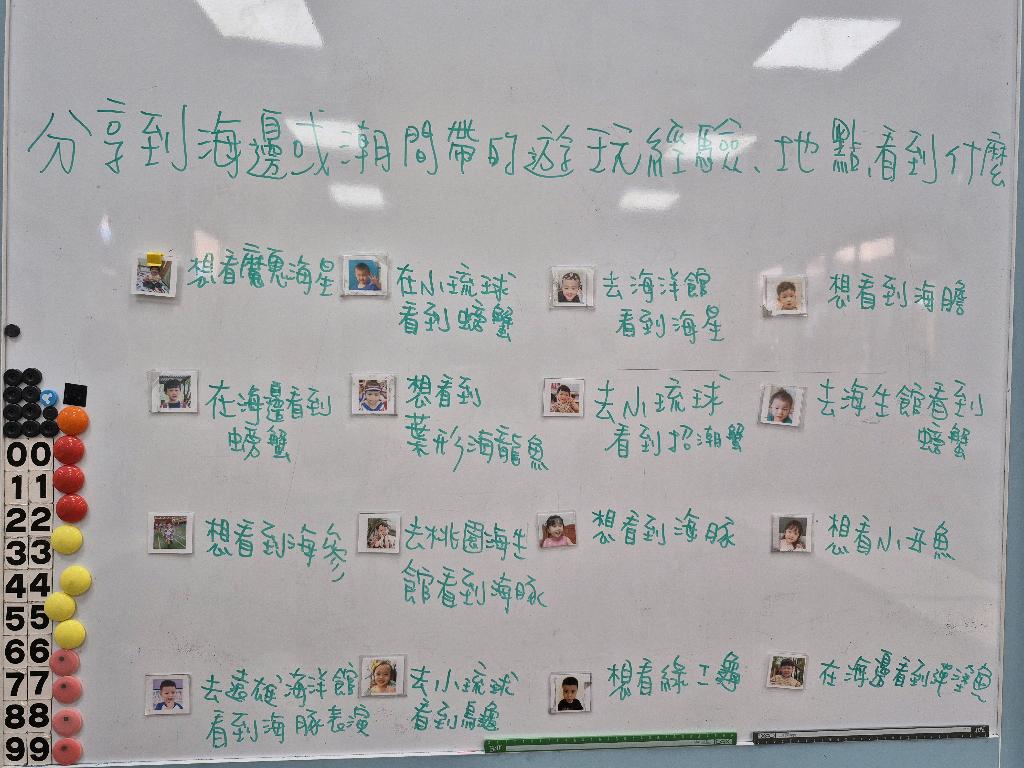 分享到海邊或潮間帶的遊玩經驗、地點,看到什麼
想看魔鬼海星
在小琉球
看到螃蟹
去海洋館
看到海星
想看到海膽
在海邊看到
螃蟹
想看到
葉形海龍魚
去小琉球
看到招潮蟹
去海生館看到
螃蟹
想看到海參
去桃園海生
館看到海豚
想看到海豚
想看小丑魚
去遠雄海洋館
看到海豚表演
去小琉球
看到烏龜
想看綠ㄍ龜
在海邊看到彈塗魚
00
11
22
33
44
55
66
77
88
99